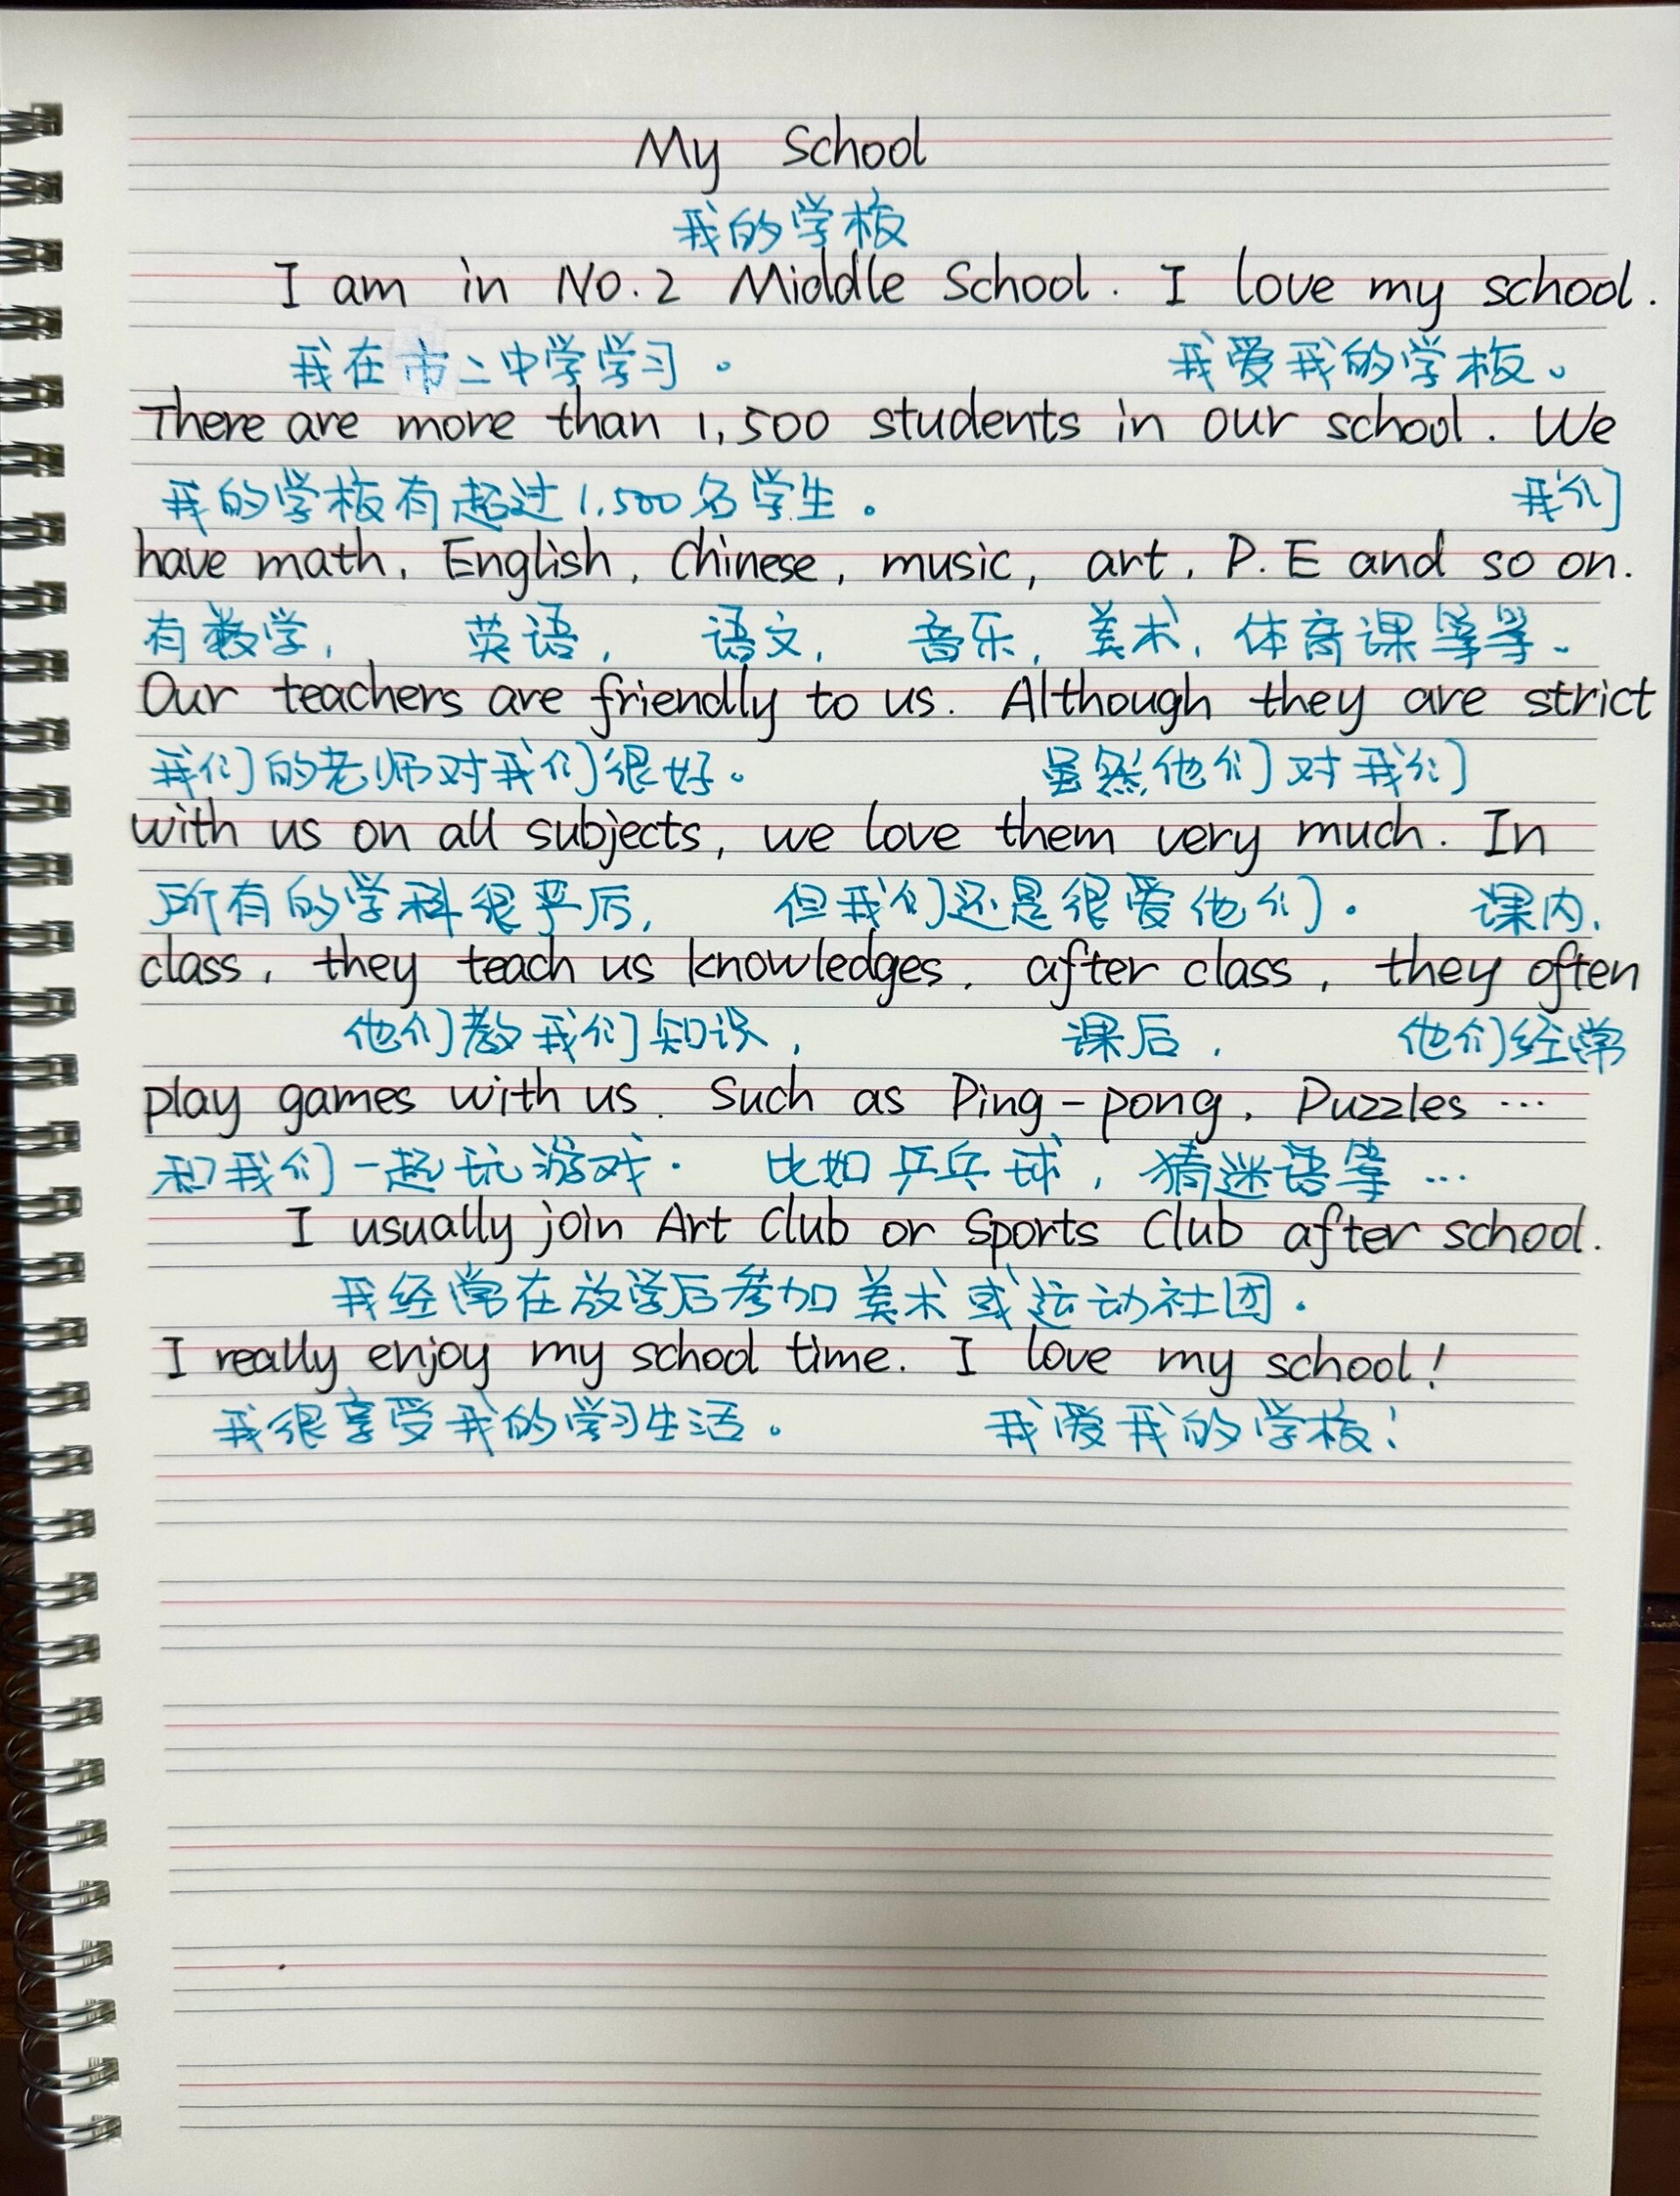 My School
我的学校
I am in No.2 Middle School. I love my school.
我在市二中学学习。 我爱我的学校。
There are more than 1,500 students in our school. We
我的学校有超过1,500名学生。 我们
have math, English, Chinese, music, art, P.E and so on.
有数学, 英语, 语文, 音乐, 美术, 体育课等等.
Our teachers are friendly to us. Although they are strict
我们的老师对我们很好。 虽然他们对我们
with us on all subjects, we love them very much. In
所有的学科很严厉, 但我们还是很爱他们. 课内,
class, they teach us knowledges, after class, they often
他们教我们知识, 课后, 他们经常
play games with us. Such as Ping-pong, Puzzles ...
和我们一起玩游戏. 比如乒乓球, 猜迷语等 ...
I usually join Art Club or Sports Club after school.
我经常在放学后参加美术或运动社团.
I really enjoy my school time. I love my school!
我很享受我的学习生活。 我爱我的学校!